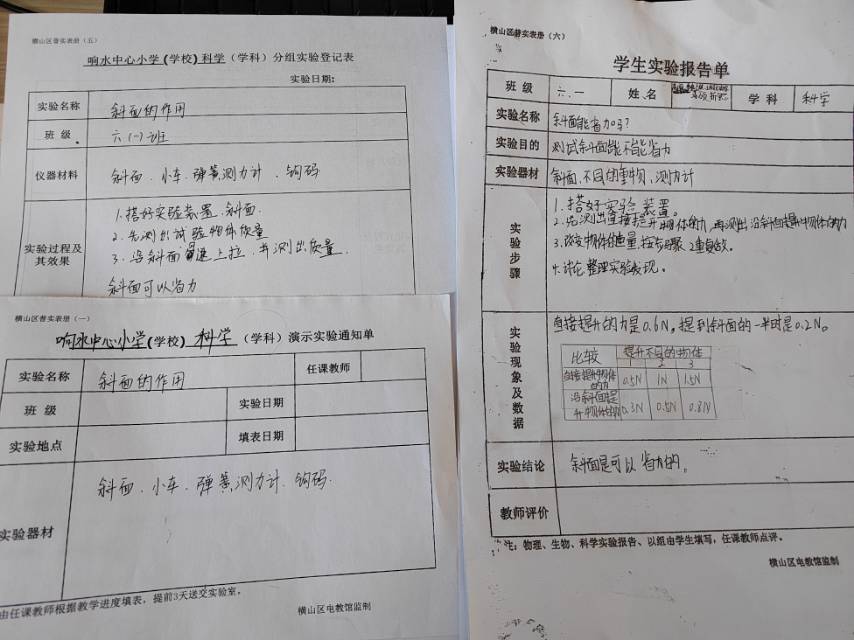 横山区普实表册（五）
响水中心小学（学校）科学（学科）分组实验登记表
实验日期：
实验名称 斜面的作用
班级 六（一）班
仪器材料 斜面、小车、弹簧测力计、钩码
实验过程及其效果
1.搭好实验装置.斜面.
2.先测出试验物体质量
3.沿斜面 上拉，并测出质量.
斜面可以省力
横山区普实表册（一）
响水中心小学（学校）科学（学科）演示实验通知单
实验名称 斜面的作用 任课教师
班级 实验日期
实验地点 填表日期
实验器材 斜面、小车、弹簧测力计、钩码.
由任课教师根据教学进度填表，提前3天送交实验室。
横山区电教馆监制
横山区普实表册（六）
学生实验报告单
班级 六.一 姓名 学科 科学
实验名称 斜面能省力吗?
实验目的 测试斜面能不能省力
实验器材 斜面,不同的重物,测力计
实验步骤
1.搭好实验装置。
2.先测出直接提升物体的力,再测出沿斜面提升物体的力
3.改变物体的重量,按步骤2重复做。
4.讨论,整理实验发现。
实验现象及数据
直接提升的力是0.6N。提到斜面的一半时是0.2N。
比较 提升不同的物体
1 2 3
直接提升物体的力 0.5N 1N 1.5N
沿斜面提升物体的力 0.3N 0.5N 0.8N
实验结论 斜面是可以省力的。
教师评价
注：物理、生物、科学实验报告、以组由学生填写，任课教师点评。
横山区电教馆监制